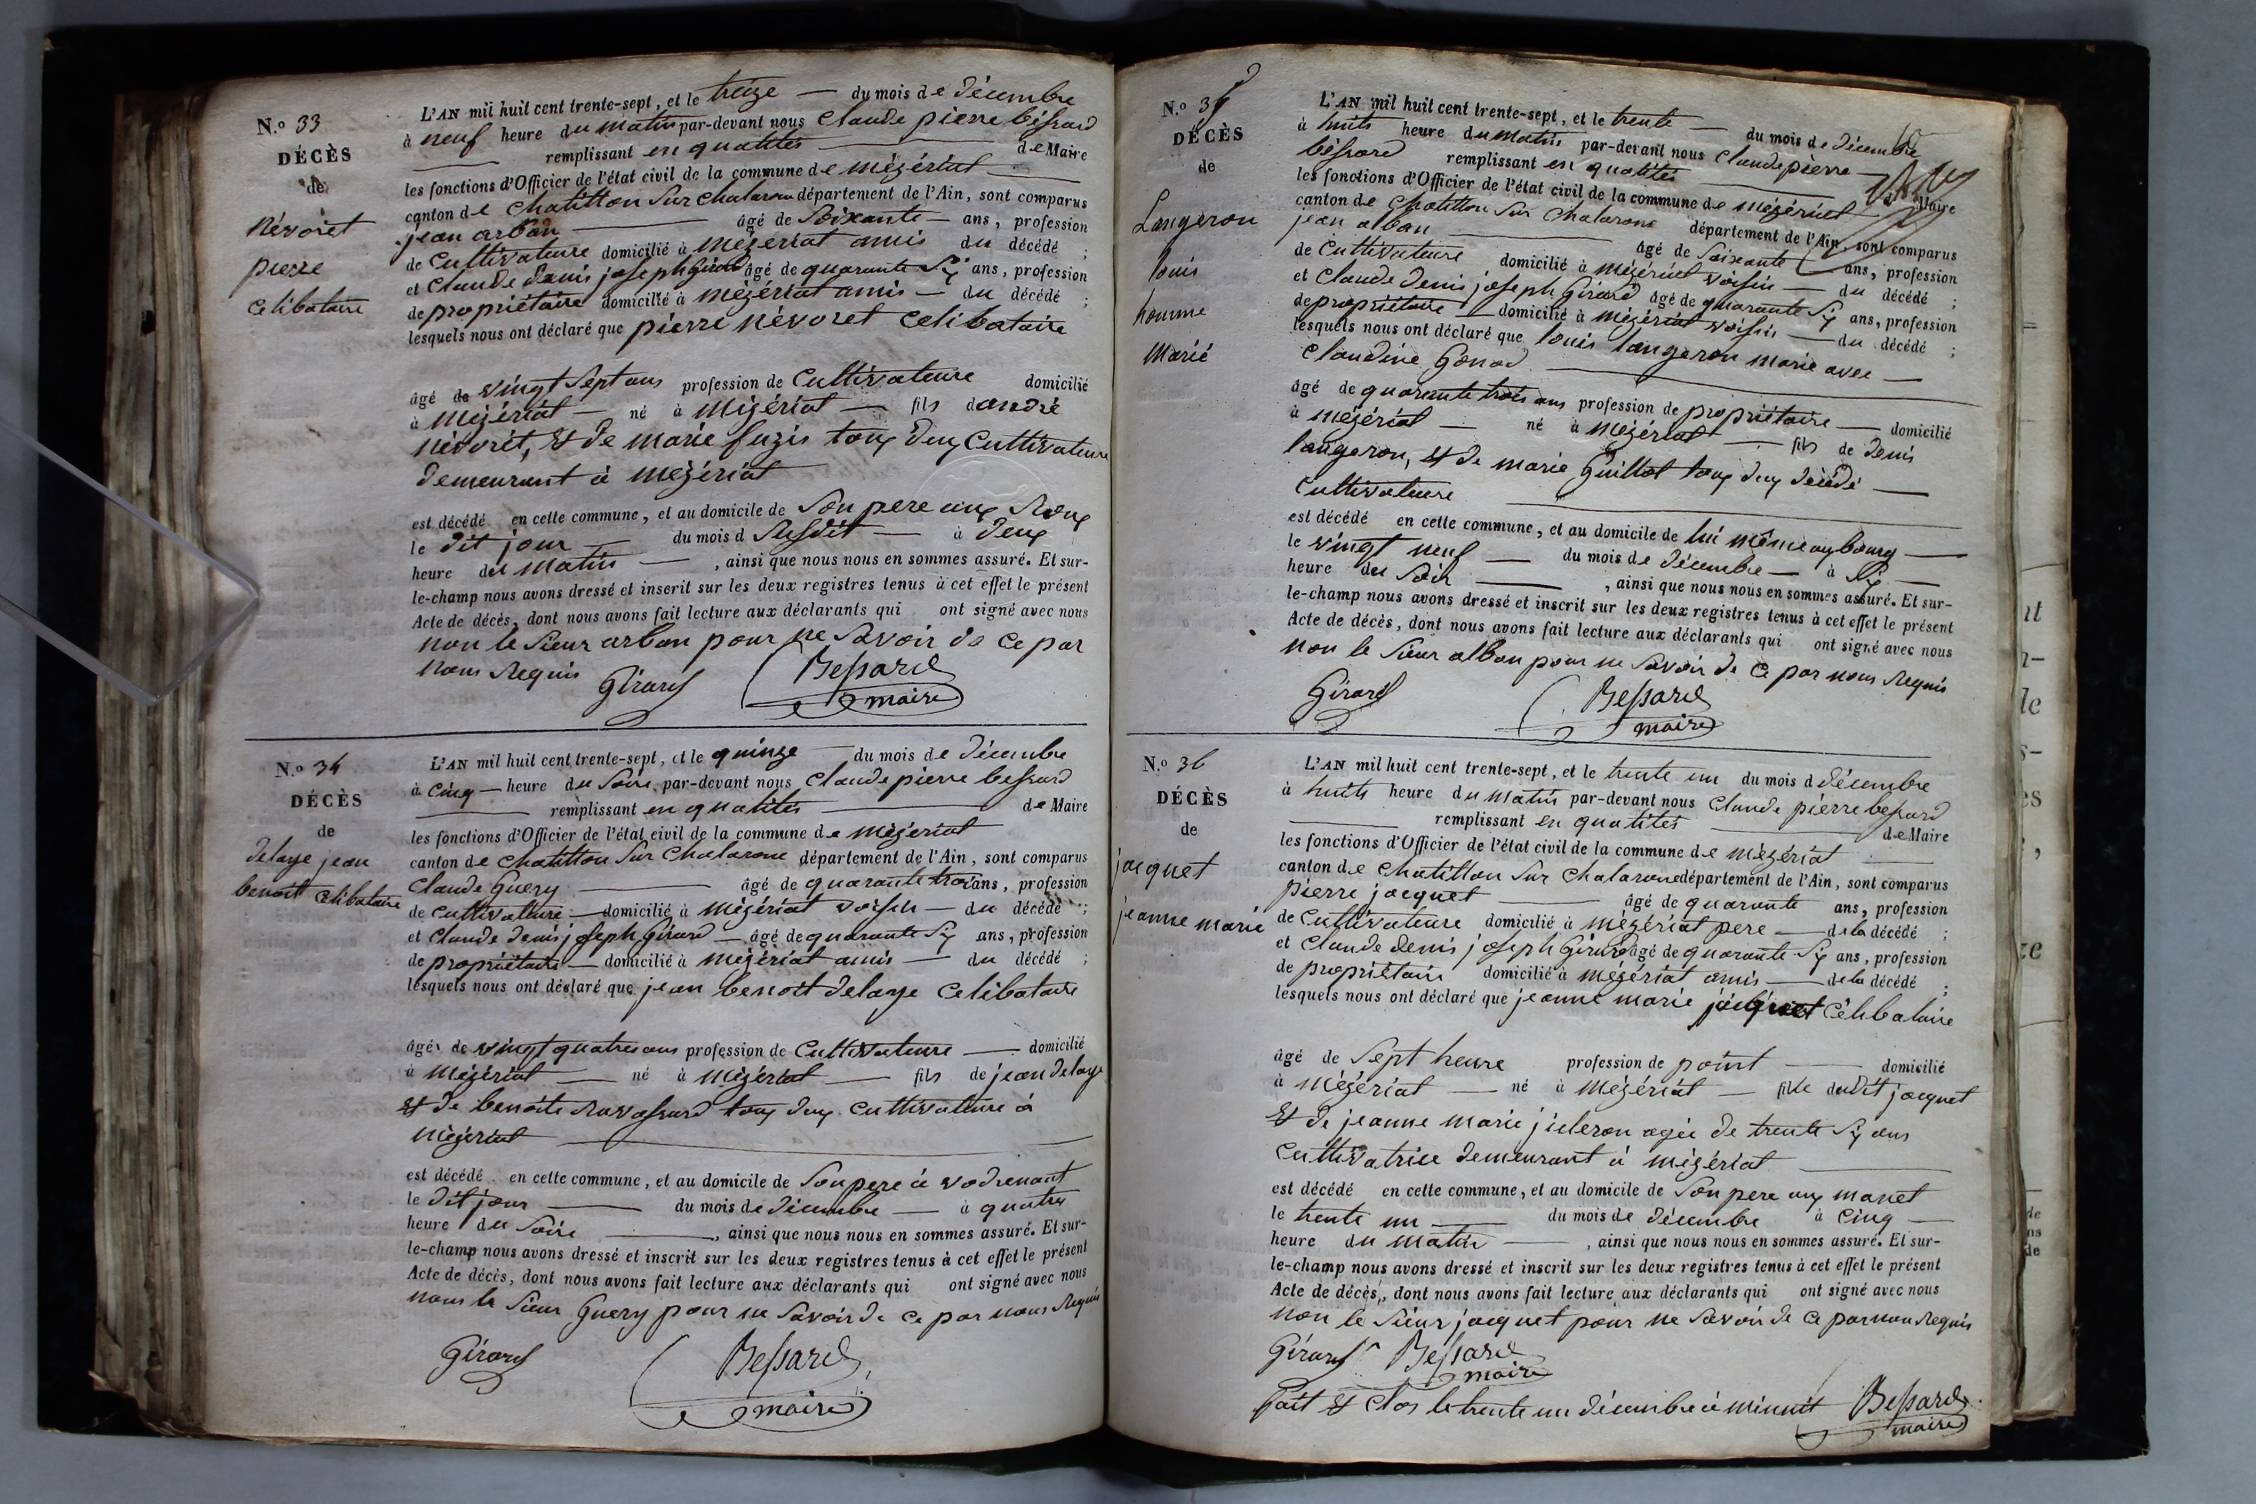 N.o 33
DÉCÈS
de
Névoret
pierre
celibataire
L'AN mil huit cent trente-sept, et le treize — du mois de décembre
à neuf heure du matin par-devant nous Claude pierre béssard
— remplissant en qualités — de Maire
les fonctions d'Officier de l'état civil de la commune de mézériat —
canton de chatillon Sur chalarone département de l'Ain, sont comparus
jean arban — âgé de Soixante — ans, profession
de Cultivateure domicilié à mézériat amis du décédé ;
et Claude denis joseph Girard âgé de quarante Six ans, profession
de propriétaire domicilié à mézériat amis — du décédé ;
lesquels nous ont déclaré que pierre névoret Celibataire
âgé de vingt Sept ans profession de Cultivateure domicilié
à mézériat — né à mézériat — fils d andré
névorét, et de marie fuzis tous deux Cultivateure
demeurant à mézériat
est décédé en cette commune, et au domicile de Son pere aux
le dit jour — du mois d Susdit — à deux
heure du matin — , ainsi que nous nous en sommes assuré. Et sur-
le-champ nous avons dressé et inscrit sur les deux registres tenus à cet effet le présent
Acte de décès, dont nous avons fait lecture aux déclarants qui ont signé avec nous
non le Sieur arban pour ne Savoir de ce par
nous Requis Girard Bessard
maire
N.o 34
DÉCÈS
de
delaye jean
benoit celibataire
L'AN mil huit cent trente-sept, et le quinze — du mois de décembre
à cinq — heure du Soire par-devant nous Claude pierre bessard
— remplissant en qualités — de Maire
les fonctions d'Officier de l'état civil de la commune de mézériat
canton de chatillon Sur Chalarone département de l'Ain, sont comparus
Claude Guery — âgé de quarante trois ans, profession
de cultivateure — domicilié à mézériat voisin — du décédé ;
et Claude denis joseph Girard — âgé de quarante Six ans, profession
de propriétaire — domicilié à mézériat amis — du décédé ;
lesquels nous ont déclaré que jean benoit delaye Celibataire
âgé de vingt quatres ans profession de Cultivateure — domicilié
à mézériat — né à mézériat — fils de jean delaye
et de benoite Ravassard tous deux cultivateure à
mézériat —
est décédé en cette commune, et au domicile de Son pere à vodrenant
le dit jour — du mois de décembre — à quatre
heure du Soire — , ainsi que nous nous en sommes assuré. Et sur-
le-champ nous avons dressé et inscrit sur les deux registres tenus à cet effet le présent
Acte de décès, dont nous avons fait lecture aux déclarants qui ont signé avec nous
nous le Sieur Guery pour ne Savoir de ce par nous Requis
Girard Bessard
maire
DÉCÈS
de
Langeron
louis
homme
Marié
L'AN mil huit cent trente-sept, et le trente — du mois de décembre
à huits heure du matin par-devant nous Claude pierre —
béssard remplissant en qualités — de Maire
les fonctions d'Officier de l'état civil de la commune de mézériat
canton de chatillon Sur chalarone département de l'Ain, sont comparus
jean alban — âgé de Soixante — ans, profession
de Cultivateure domicilié à mézériat voisin — du décédé ;
et Claude denis joseph Girard âgé de quarante Six ans, profession
de propriétaire domicilié à mézériat voisin — du décédé ;
lesquels nous ont déclaré que louis langeron marié avec —
Claudine Gonod —
âgé de quarante trois ans profession de propriétaire — domicilié
à mézériat — né à mézériat — fils de denis
langeron, et de marie Guillot tous deux décédé —
Cultivateure —
est décédé en cette commune, et au domicile de lui même au bourg —
le vingt neuf — du mois de décembre — à Six —
heure du Soir — , ainsi que nous nous en sommes assuré. Et sur-
le-champ nous avons dressé et inscrit sur les deux registres tenus à cet effet le présent
Acte de décès, dont nous avons fait lecture aux déclarants qui ont signé avec nous
non le Sieur alban pour ne Savoir de ce par nous Requis
Girard Bessard
maire
N.o 36
DÉCÈS
de
jacquet
jeanne marie
L'AN mil huit cent trente-sept, et le trente un du mois d décembre
à huits heure du matin par-devant nous Claude pierre bessard
— remplissant en qualités — de Maire
les fonctions d'Officier de l'état civil de la commune de mézériat —
canton de chatillon Sur Chalarone département de l'Ain, sont comparus
pierre jacquet — âgé de quarante ans, profession
de Cultivateure domicilié à mézériat pere — de la décédé ;
et Claude denis joseph Girard âgé de quarante Six ans, profession
de propriétaire domicilié à mézériat amis — de la décédé ;
lesquels nous ont déclaré que jeanne marie jacquet Célibataire
âgé de Sept heure profession de point — domicilié
à mézériat — né à mézériat — fille dudit jacquet
et de jeanne marie agée de trente Six ans
Cultivatrice demeurant à mézériat —
est décédé en cette commune, et au domicile de Son pere aux manet
le trente un — du mois de décembre à Cinq —
heure du matin — , ainsi que nous nous en sommes assuré. Et sur-
le-champ nous avons dressé et inscrit sur les deux registres tenus à cet effet le présent
Acte de décès, dont nous avons fait lecture aux déclarants qui ont signé avec nous
non le Sieur jacquet pour ne Savoir de ce par nou Requis
Girard Bessard
maire
fait et Clos le trente un décembre à minuit Bessard
maire